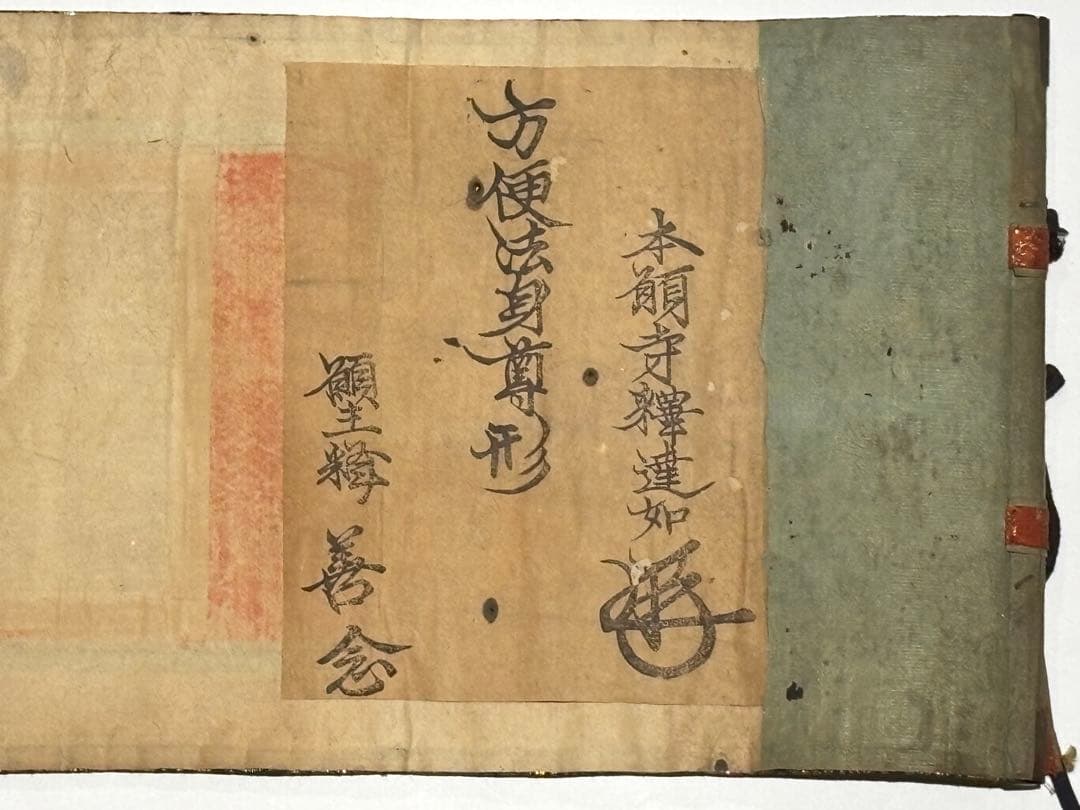 本願寺釋達如
方便法身尊形
願主釋 善念